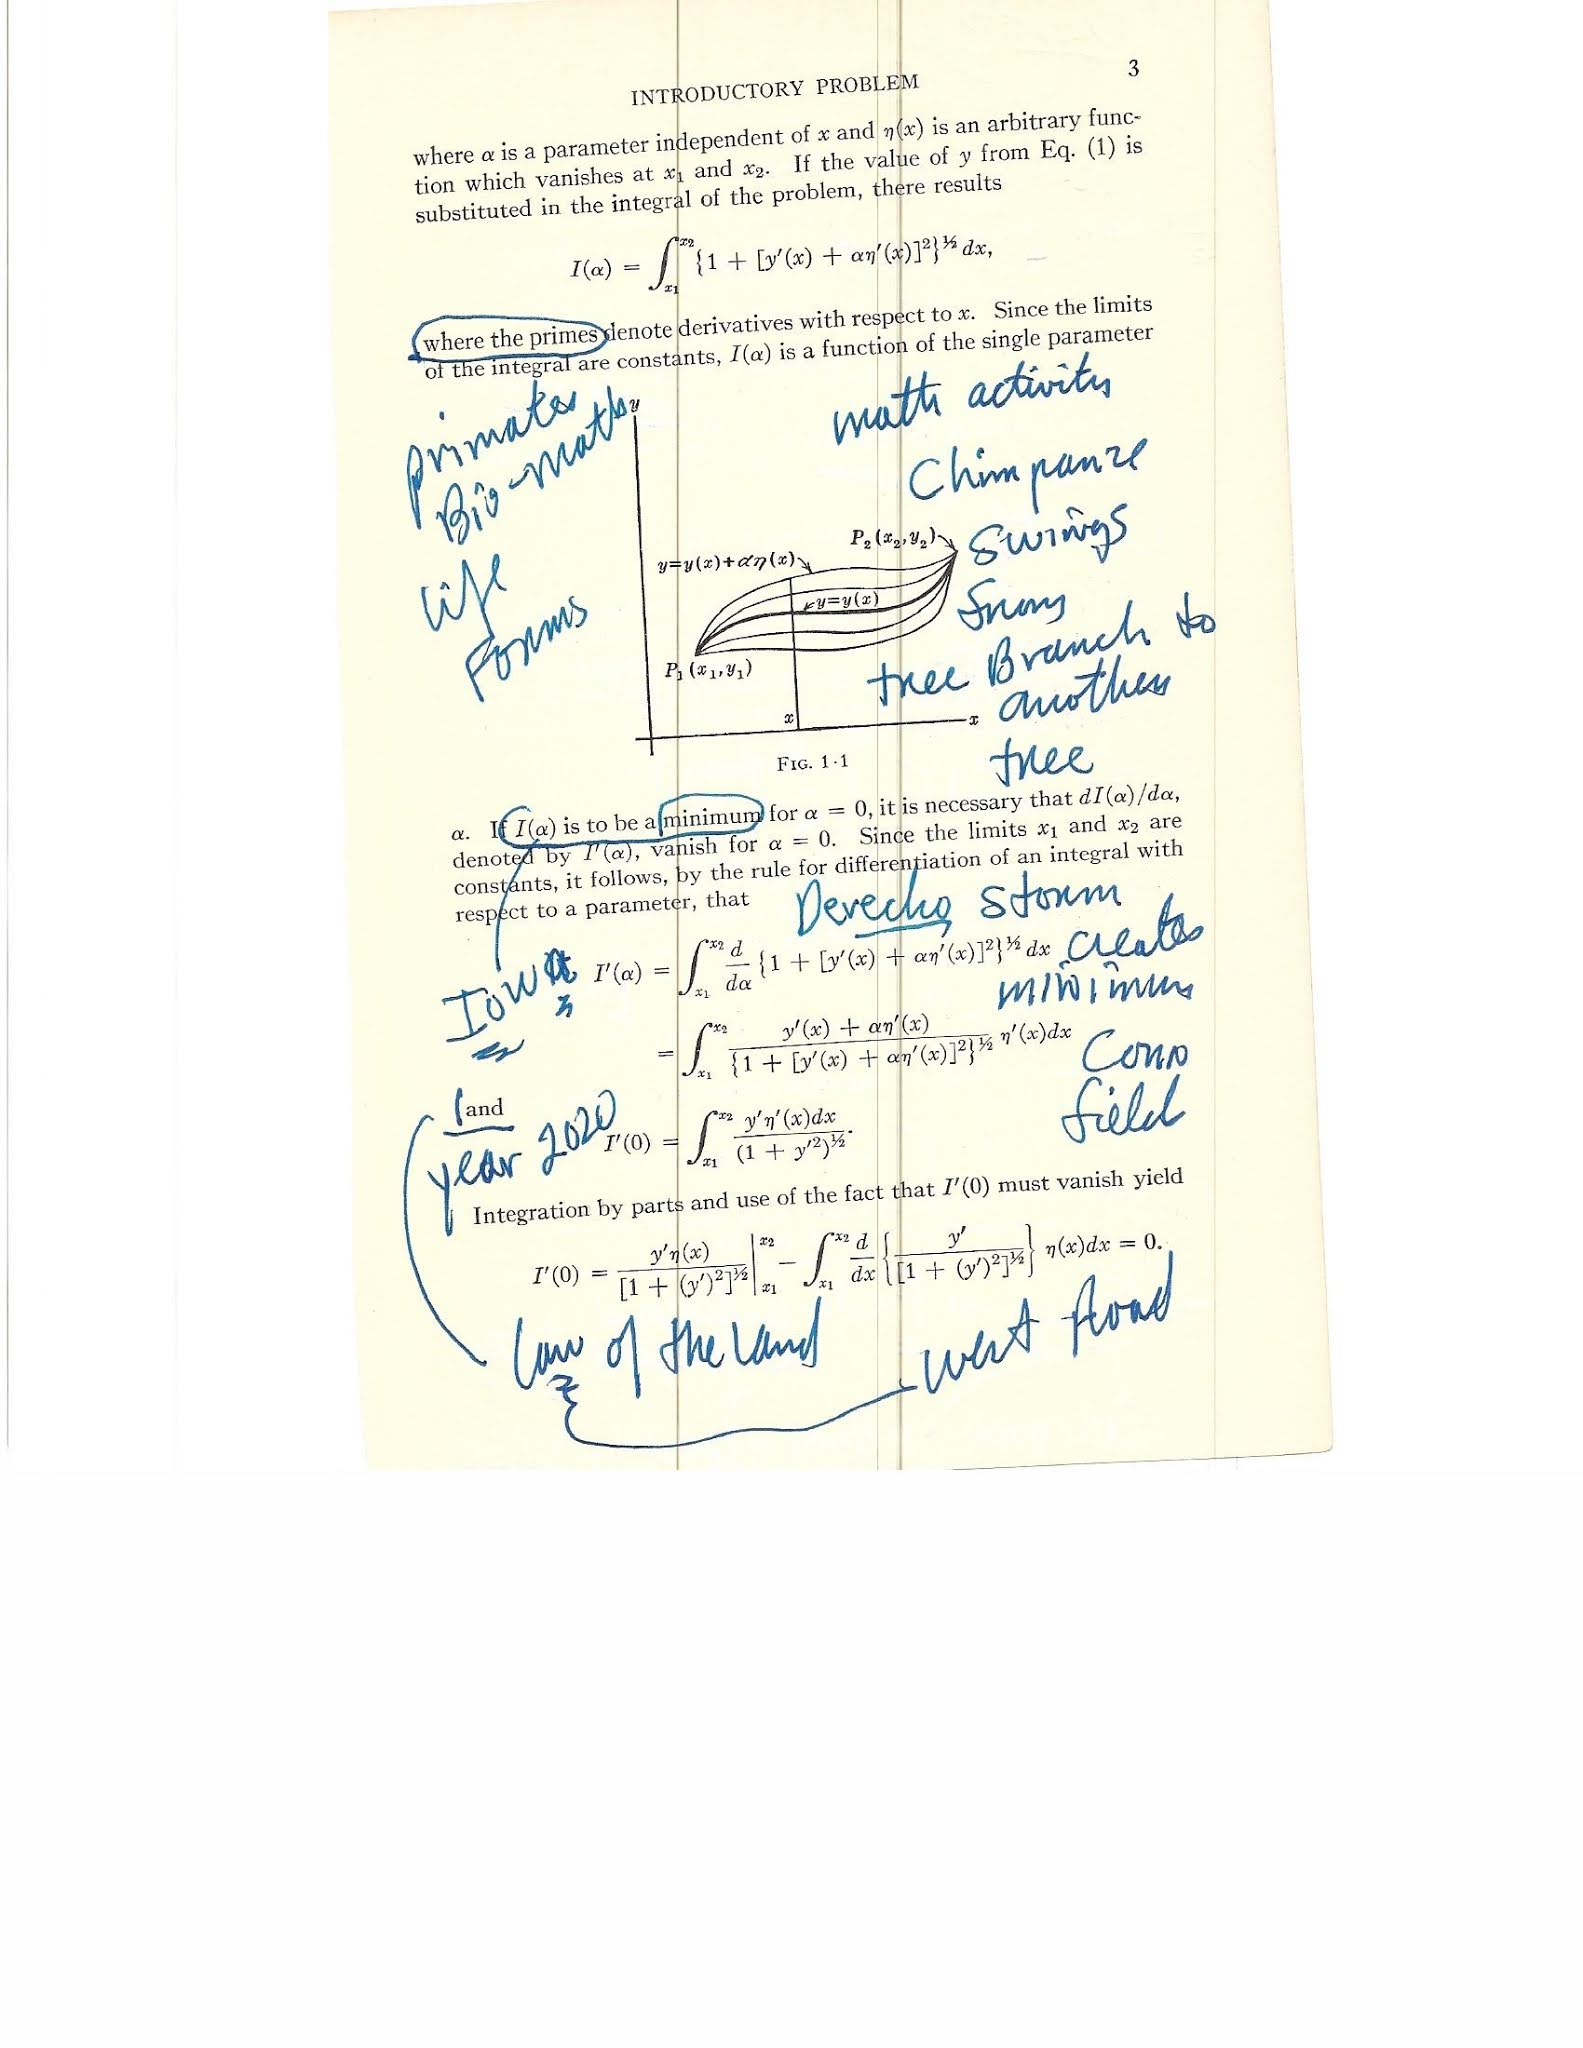 3
INTRODUCTORY PROBLEM
where α is a parameter independent of x and η(x) is an arbitrary func-
tion which vanishes at x₁ and x₂. If the value of y from Eq. (1) is
substituted in the integral of the problem, there results
I(α) = ∫_{x₁}^{x₂} {1 + [y′(x) + αη′(x)]²}^½ dx,
where the primes denote derivatives with respect to x. Since the limits
of the integral are constants, I(α) is a function of the single parameter
Primates
Bio-math
Life
Forms
math activity
Chimpanze
Swings
from
tree Branch to
another
tree
y
P₂(x₂,y₂)
y=y(x)+αη(x)
y=y(x)
P₁(x₁,y₁)
x
x
FIG. 1·1
α. If I(α) is to be a minimum for α = 0, it is necessary that dI(α)/dα,
denoted by I′(α), vanish for α = 0. Since the limits x₁ and x₂ are
constants, it follows, by the rule for differentiation of an integral with
respect to a parameter, that
Derecho storm
creates
minimum
Corn
field
Iowa
I′(α) = ∫_{x₁}^{x₂} d/dα {1 + [y′(x) + αη′(x)]²}^½ dx
= ∫_{x₁}^{x₂} (y′(x) + αη′(x)) / {1 + [y′(x) + αη′(x)]²}^½ η′(x)dx
land
year 2020
I′(0) = ∫_{x₁}^{x₂} y′η′(x)dx / (1 + y′²)^½.
Integration by parts and use of the fact that I′(0) must vanish yield
I′(0) = y′η(x) / [1 + (y′)²]^½ |_{x₁}^{x₂} − ∫_{x₁}^{x₂} d/dx {y′ / [1 + (y′)²]^½} η(x)dx = 0.
Law of the land
went